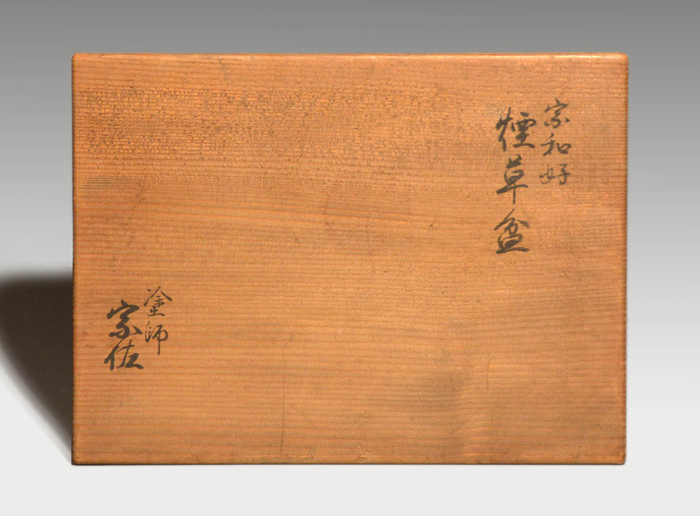 宗和好
煙草盆
塗師
宗佐